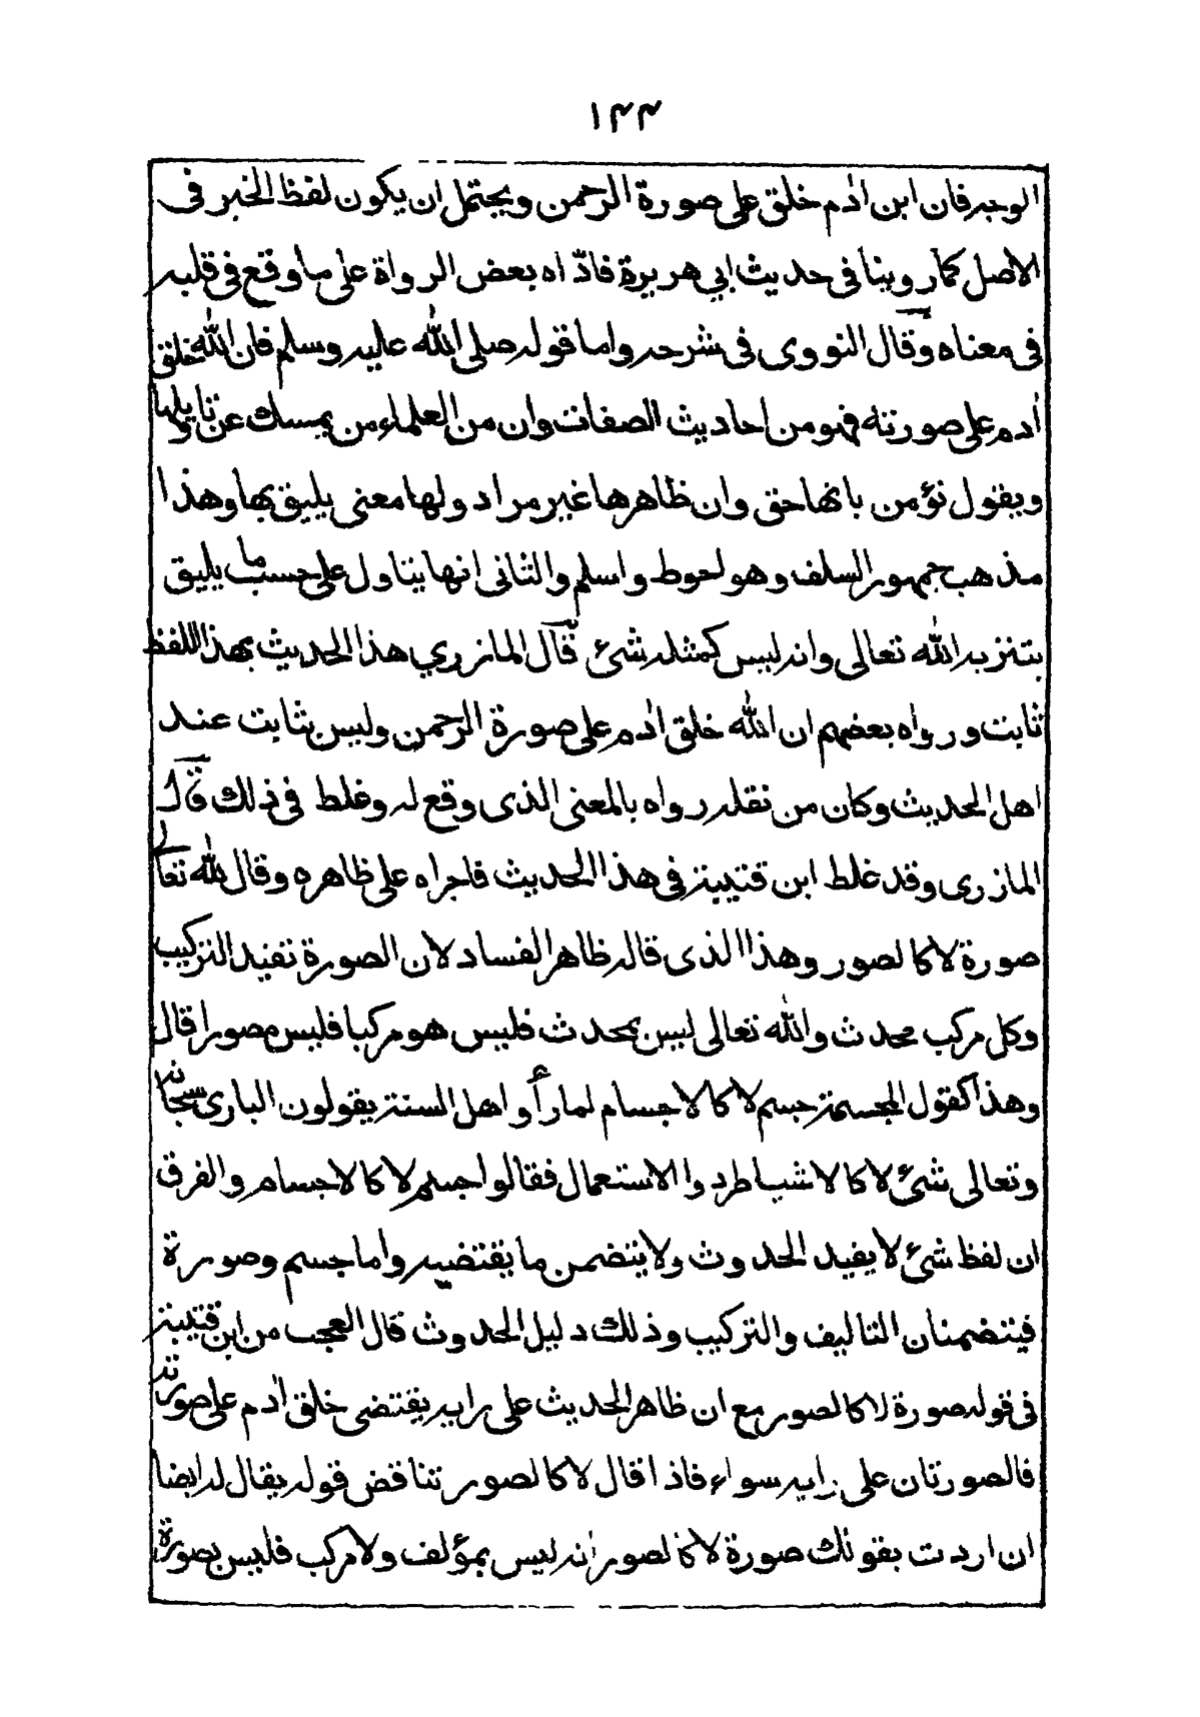 ١٣٣
الوجه فان ابن اٰدم خلق على صورة الرحمن ويحتمل ان يكون لفظ الخبر فى
الاصل كما روينا فى حديث ابي هريرة فادّاه بعض الرواة على ما وقع فى قلبه
فى معناه وقال النووى فى شرحه واما قوله صلى الله عليه وسلم فان الله خلق
اٰدم على صورته فهو من احاديث الصفات وان من العلماء من يمسك عن تاويلها
ويقول نؤمن بانها حق وان ظاهرها غير مراد ولها معنى يليق بها وهذا
مذهب جمهور السلف وهو احوط واسلم والثانى انها يتاول على حسب ما يليق
بتنزيه الله تعالى وانه ليس كمثله شئ قال المازري هذا الحديث بهذا اللفظ
ثابت ورواه بعضهم ان الله خلق اٰدم على صورة الرحمن وليس بثابت عند
اهل الحديث وكان من نقله رواه بالمعنى الذى وقع له وغلط فى ذلك قال
المازرى وقد غلط ابن قتيبة فى هذا الحديث فاجراه على ظاهره وقال لله تعالى
صورة لا كالصور وهذا الذى قاله ظاهر الفساد لان الصورة تفيد التركيب
وكل مركب محدث والله تعالى ليس بمحدث فليس هو مركبا فليس مصورا قال
وهذا كقول المجسمة جسم لا كالاجسام لما رأوا اهل السنة يقولون البارى سبحانه
وتعالى شئ لا كالاشيا طردوا الاستعمال فقالوا جسم لا كالاجسام والفرق
ان لفظ شئ لا يفيد الحدوث ولا يتضمن ما يقتضيه واما جسم وصورة
فيتضمنان التاليف والتركيب وذلك دليل الحدوث قال العجب من ابن قتيبة
فى قوله صورة لا كالصور مع ان ظاهر الحديث على رايه يقتضى خلق اٰدم على صورته
فالصورتان على رايه سواء فاذا قال لا كالصور تناقض قوله يقال له ايضا
ان اردت بقولك صورة لا كالصور انه ليس بمؤلف ولا مركب فليس بصورة